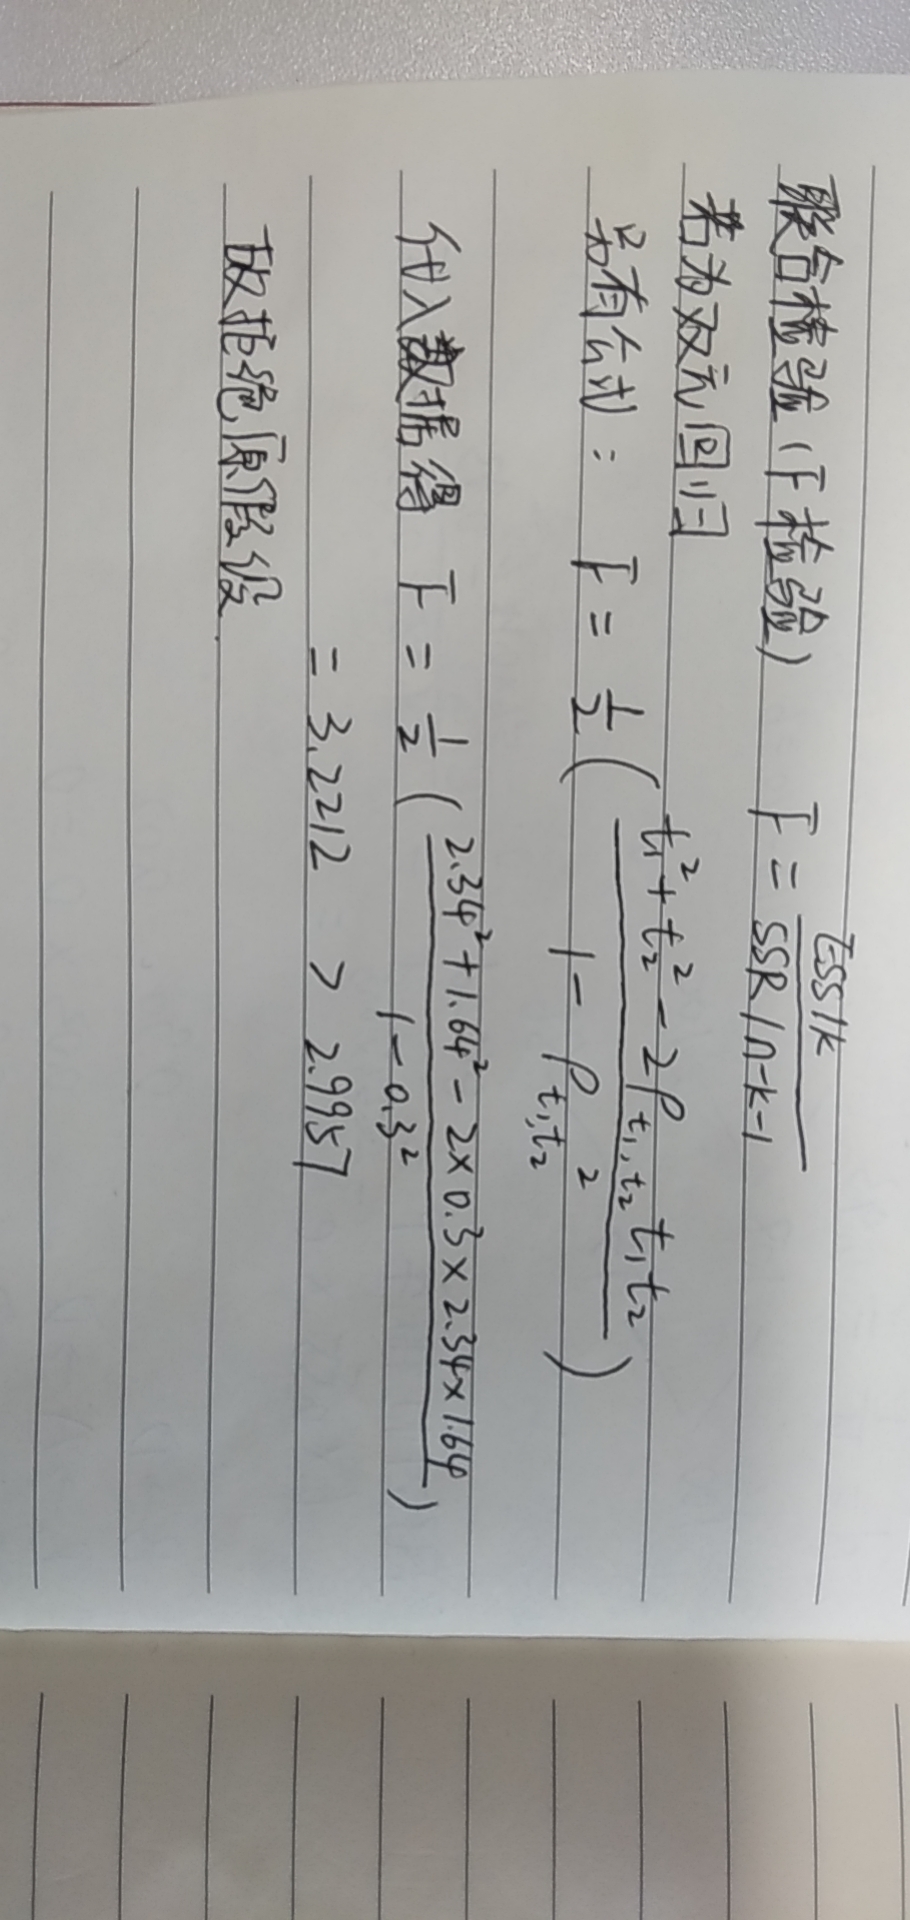 联合检验(F检验) F = ESS/k / SSR/n-k-1
若为双元回归
另有公式: F = 1/2 ( t₁² + t₂² - 2ρ_{t₁,t₂} t₁t₂ / 1 - ρ_{t₁,t₂}² )
代入数据得 F = 1/2 ( 2.34² + 1.64² - 2×0.3×2.34×1.64 / 1 - 0.3² )
= 3.2212 > 2.9957
故拒绝原假设.